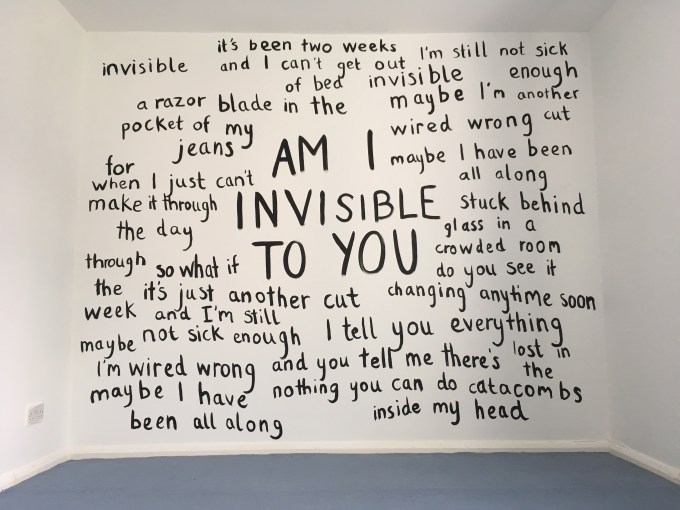 it's been two weeks
and I can't get out
of bed
I'm still not sick
enough
invisible
invisible
a razor blade in the
pocket of my
jeans
maybe I'm another
wired wrong cut
maybe I have been
all along
AM I
INVISIBLE
TO YOU
for
when I just can't
make it through
the day
stuck behind
glass in a
crowded room
do you see it
changing anytime soon
through
the
week
so what if
it's just another cut
and I'm still
not sick enough
maybe
I'm wired wrong
maybe I have
been all along
I tell you everything
and you tell me there's
nothing you can do
lost in
the
catacombs
inside my head